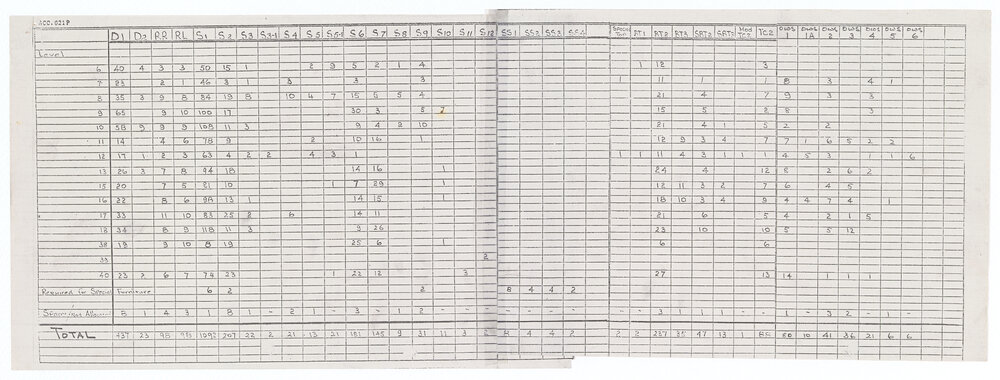 ACC. 621P
D1 D2 RR RL S1 S2 S3 S3-1 S4 S5 S5-1 S6 S7 S8 S9 S10 S11 S12 SS1 SS2 SS3 RT1 RT2 RT3 SRT2 SRT3 Mod TC2 TC2 OWS 1 OWS 1A OWS 2 OWS 3 OWS 4 OWS 5 OWS 6
Level
6 40 4 3 3 50 15 1 2 9 5 2 1 4 1 12 3
7 23 2 1 46 3 1 3 3 3 1 11 1 1 8 3 4 1
8 35 3 9 8 84 19 8 10 4 7 15 5 5 4 21 4 7 9 3 3
9 65 9 10 100 17 30 3 5 7 15 5 2 8 3
10 58 9 9 9 108 11 3 9 4 2 10 21 4 1 5 2 2
11 14 4 6 78 9 5 10 16 1 12 9 3 4 7 7 1 6 5 2 2
12 17 1 2 3 63 4 2 2 4 3 1 1 1 11 4 3 1 1 1 4 5 3 1 1 6
13 26 3 7 8 94 18 14 16 1 24 4 12 8 2 6 2
15 20 7 5 81 10 1 7 29 1 12 11 3 2 7 6 4 5
16 22 8 6 98 13 1 14 15 1 18 10 3 4 9 4 4 7 4 1
17 33 11 10 83 25 2 6 14 11 21 6 5 4 2 1 5
18 34 8 9 118 11 3 9 26 23 10 10 5 5 12
38 19 9 10 8 19 25 6 1 6 6
39 2
40 23 2 6 7 74 23 1 22 12 3 27 13 14 1 1 1
Required for Special Furniture 6 2 2 8 4 4 2
8 1 4 3 1 8 1 - 2 1 - 3 - 1 2 - - - 3 1 1 1 - - 1 - 3 2 - 1 -
TOTAL 437 23 98 1092 207 22 2 21 13 21 181 145 9 31 11 3 2 8 4 4 2 2 2 237 35 47 13 1 88 80 10 41 36 21 6 6